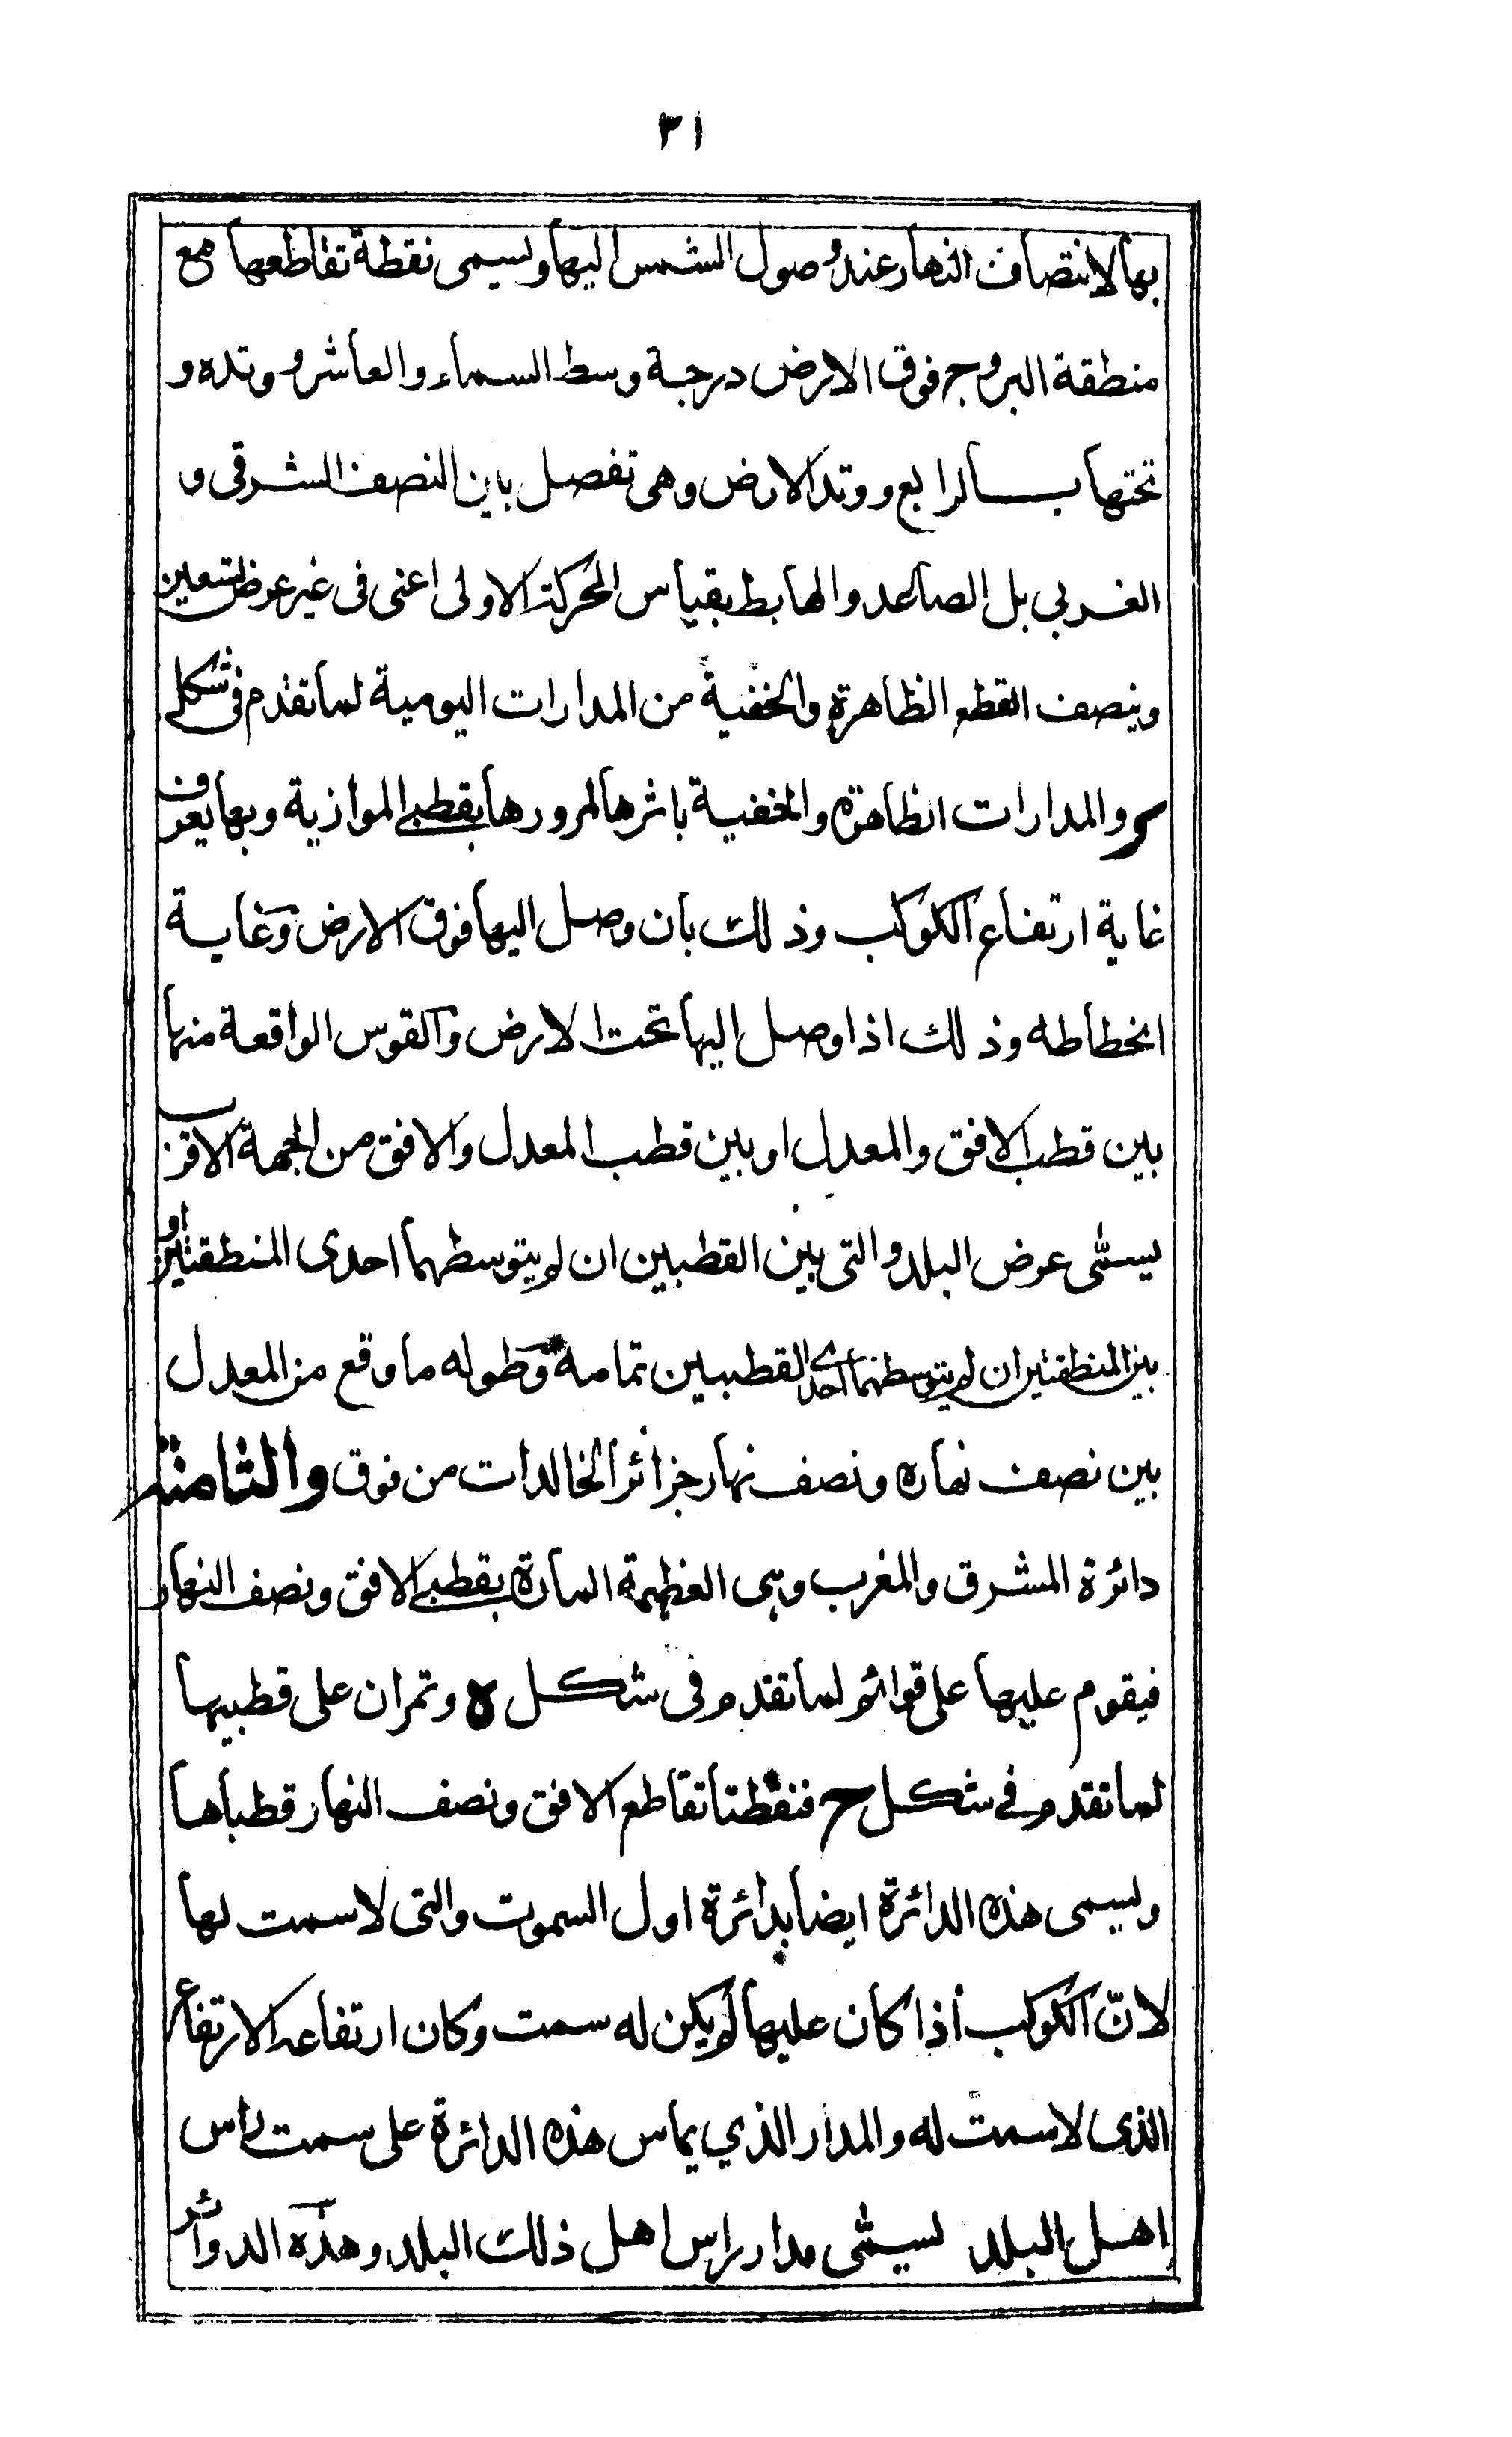 ٣١
بها لانتصاف النهار عند وصول الشمس اليها ويسمى نقطة تقاطعها مع
منطقة البروج فوق الارض درجة وسط السماء والعاشر ووتده و
تحتها بالرابع ووتد الارض وهى تفصل بين النصف الشرقى و
الغربي بل الصاعد والهابط بقياس الحركة الاولى اعنى فى غير عرض تسعين
وينصف القطع الظاهرة والخفية من المدارات اليومية لما تقدم فى شكلى
والمدارات الظاهرة والخفية باثرها لمرورها بقطبى الموازية وبها يعرف
غاية ارتفاع الكوكب وذلك بان وصل اليها فوق الارض وغاية
انحطاطه وذلك اذا وصل اليها تحت الارض والقوس الواقعة منها
بين قطب الافق والمعدل او بين قطب المعدل والافق من الجهة الاقرب
يسمّى عرض البلد والتى بين القطبين ان لم يتوسطهما احدى المنطقتين او
بين المنطقتين ان لم يتوسطهما احدى القطبين تمامه وطوله ما وقع من المعدل
بين نصف نهاره ونصف نهار جزائر الخالدات من فوق والثامنة
دائرة المشرق والمغرب وهى العظيمة المارة بقطبى الافق ونصف النهار
فيقوم عليها على قوائم لما تقدم فى شكل ه وتمران على قطبيها
لما تقدم فى شكل ح فنقطتا تقاطع الافق ونصف النهار قطباها
ويسمى هذه الدائرة ايضا بدائرة اول السموت والتى لا سمت لها
لانّ الكوكب اذا كان عليها لم يكن له سمت وكان ارتفاعه الارتفاع
الذى لا سمت له والمدار الذي يماس هذه الدائرة على سمت راس
اهل البلد يسمّى مدار راس اهل ذلك البلد وهذه الدوائر